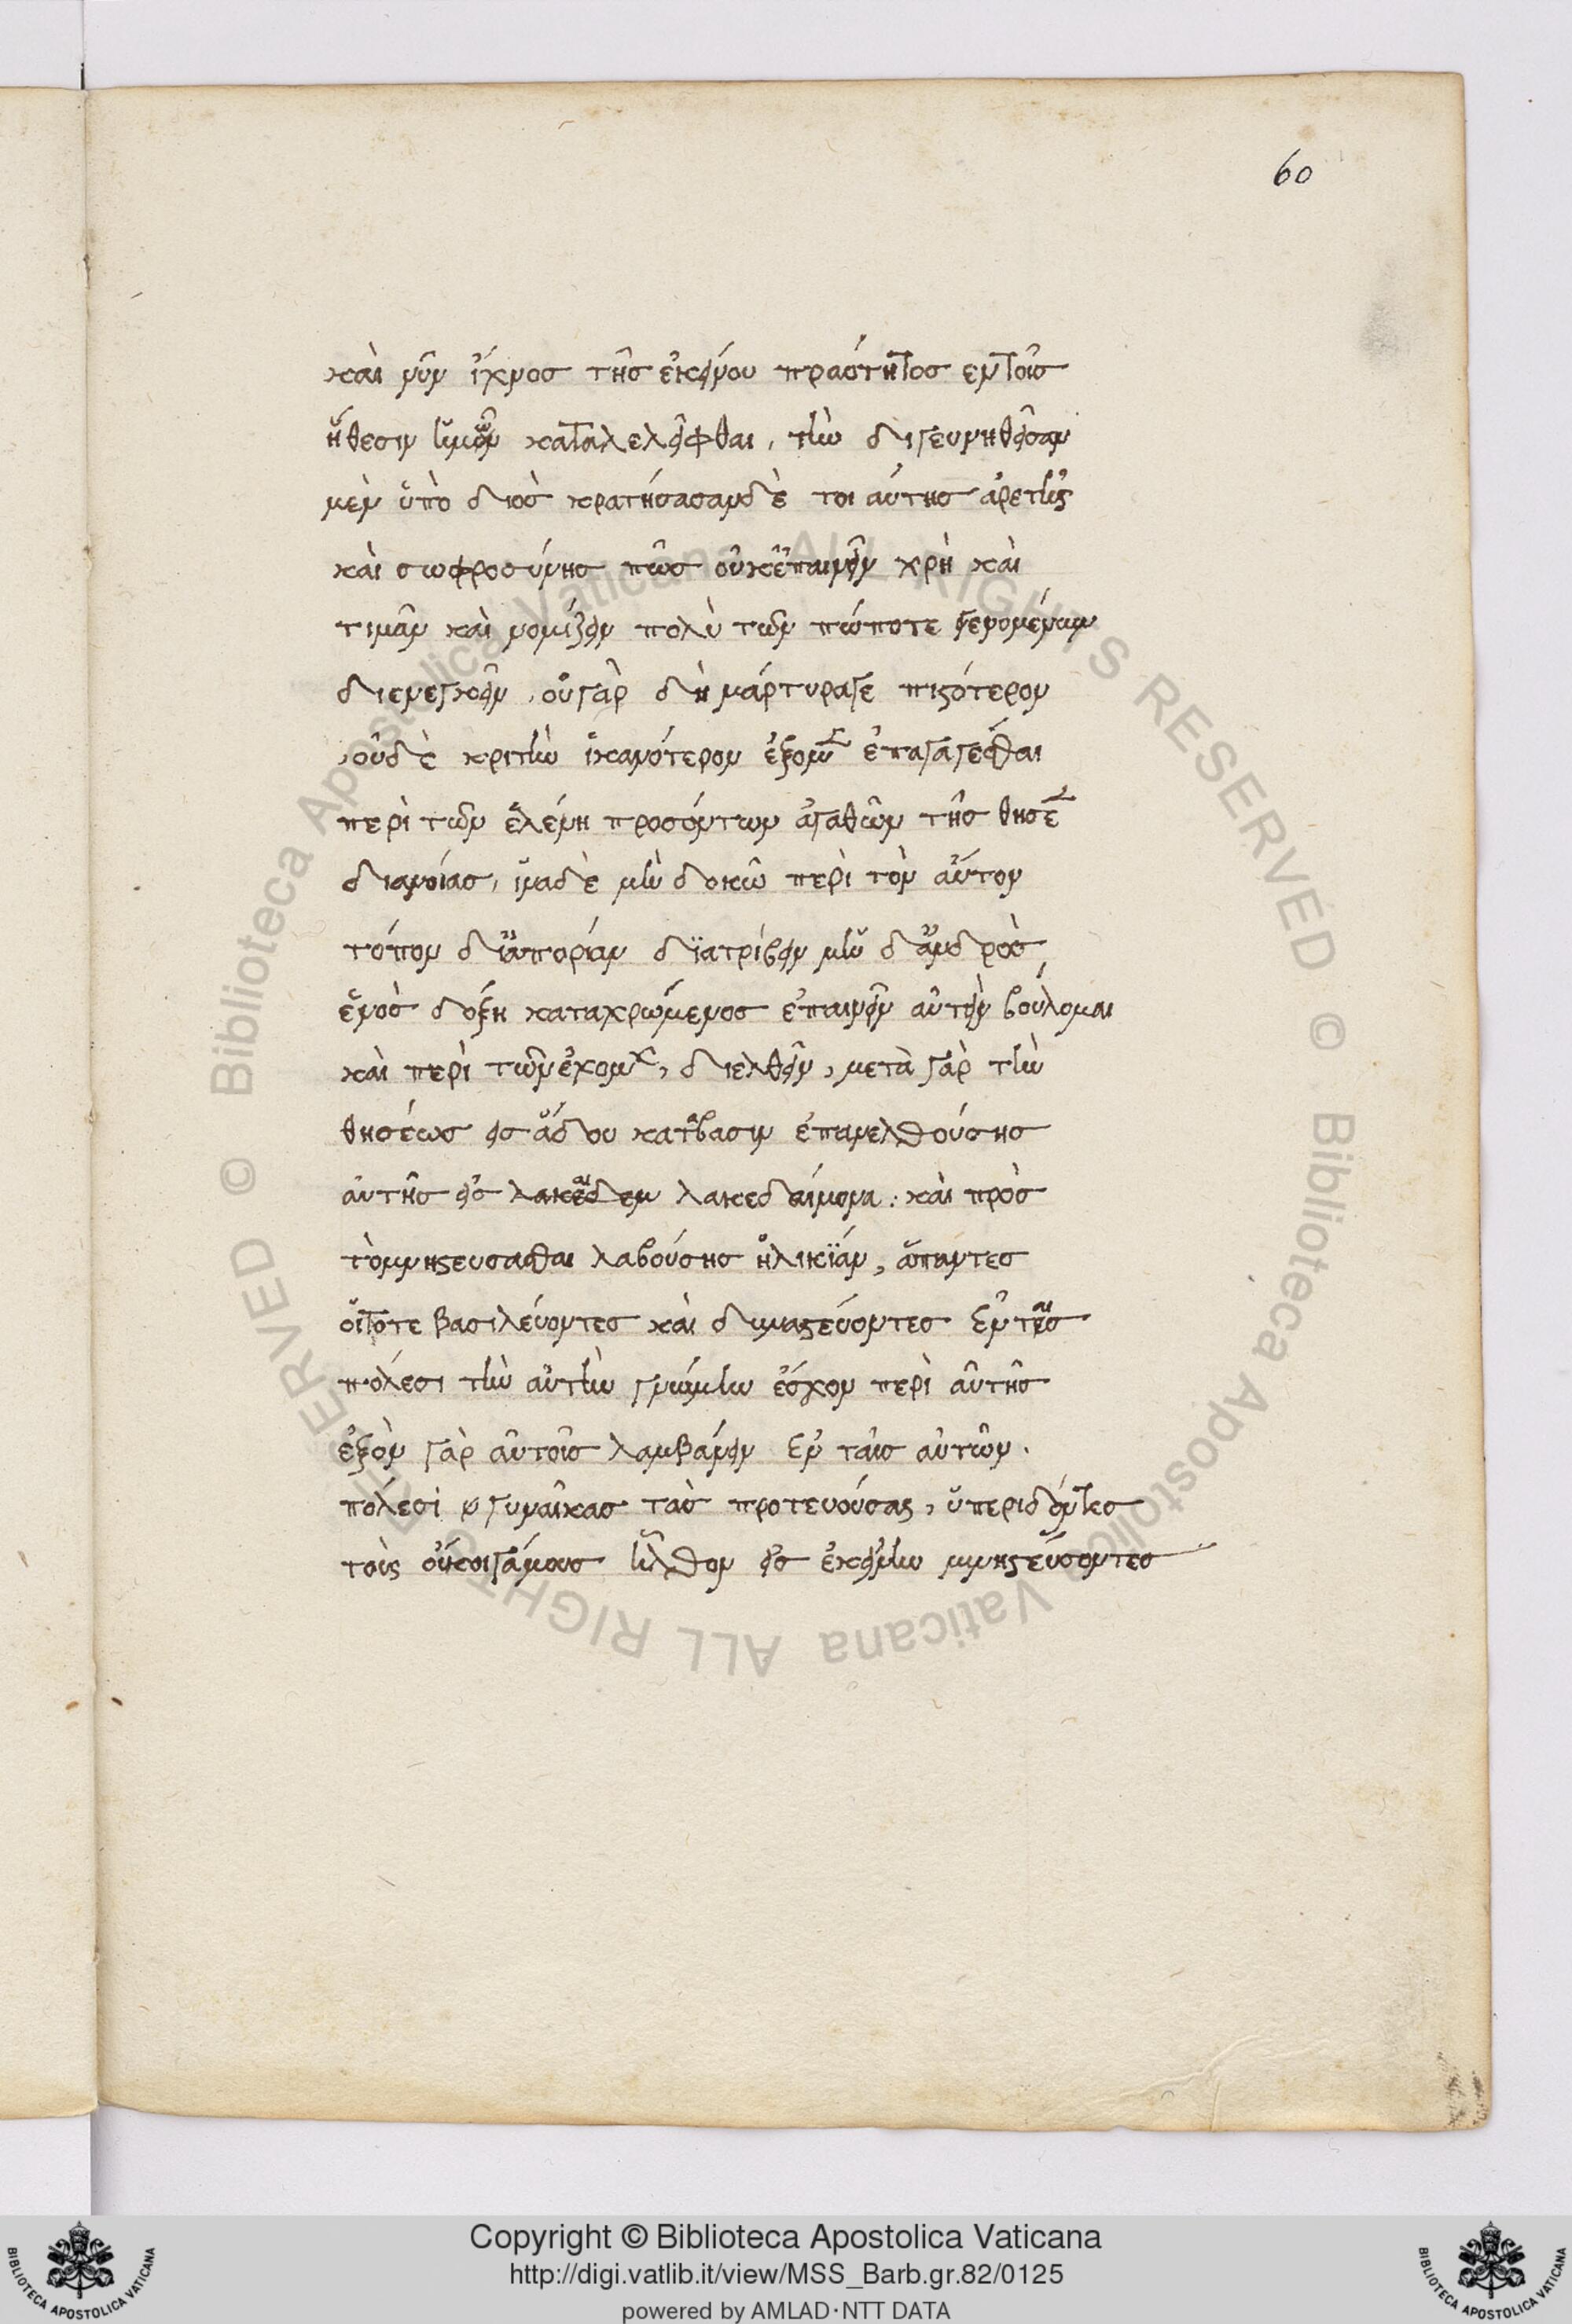 60
καὶ νῦν ἴχνοσ τῆσ ἐκείνου πραότητοσ εν τοῖσ
ἤθεσιν ἡμῶν καταλελεῖφθαι, τὴν δὴ γευνηθεῖσαν
μὲν ὑπὸ διὸσ κρατήσασαν δὲ τοι αύτησ ἀρετῆς
καὶ σωφροσύνησ πῶσ οὐκ ἐπαινεῖν χρὴ καὶ
τιμᾶν καὶ νομίζειν πολὺ τῶν πώποτε γενομένων
διενεγκεῖν, οὐ γὰρ δὴ μάρτυρα γε πιστότερον
οὐδὲ κριτὴν ἱκανότερον ἕξομεν ἐπαγαγέσθαι
περὶ τῶν ἑλένη προσόντων ἀγαθῶν τῆσ θησέ
διανοίασ, ἵνα δὲ μὴ δοκῶ περὶ τὸν αὐτον
τόπον δι ἀπορίαν διατρίβειν μὴ δ ἀνδρὸσ
ἑνὸσ δόξη καταχρώμενοσ ἐπαινεῖν αὐτὴν βούλομαι
καὶ περὶ τῶν ἐχομ, διελθεῖν, μετὰ γὰρ τὴν
θησέωσ εισ ἅδου κατάβασιν ἐπανελθούσησ
αὐτῆσ εἰσ λακεδαιμονα: καὶ πρὸσ
τὸ μνηστευσασθαι λαβούσησ ἡλικίαν, ἅπαντεσ
οἵ τότε βασιλεύοντεσ καὶ δυναστεύοντεσ ἐν ταῖσ
πόλεσι τὴν αὐτὴν γνώμην ἔσχον περὶ αὐτῆσ
ἐξὸν γὰρ αὐτοῖσ λαμβάνειν ἐν ταῖσ αὐτῶν.
πόλεσι γυναῖκασ τὰσ πρωτευούσας, ὑπεριδόντεσ
τοὺς οἴκοι γάμουσ ἦλθον εἰσ ἐκείνην μνηστεύσοντεσ
Copyright © Biblioteca Apostolica Vaticana
http://digi.vatlib.it/view/MSS_Barb.gr.82/0125
powered by AMLAD·NTT DATA